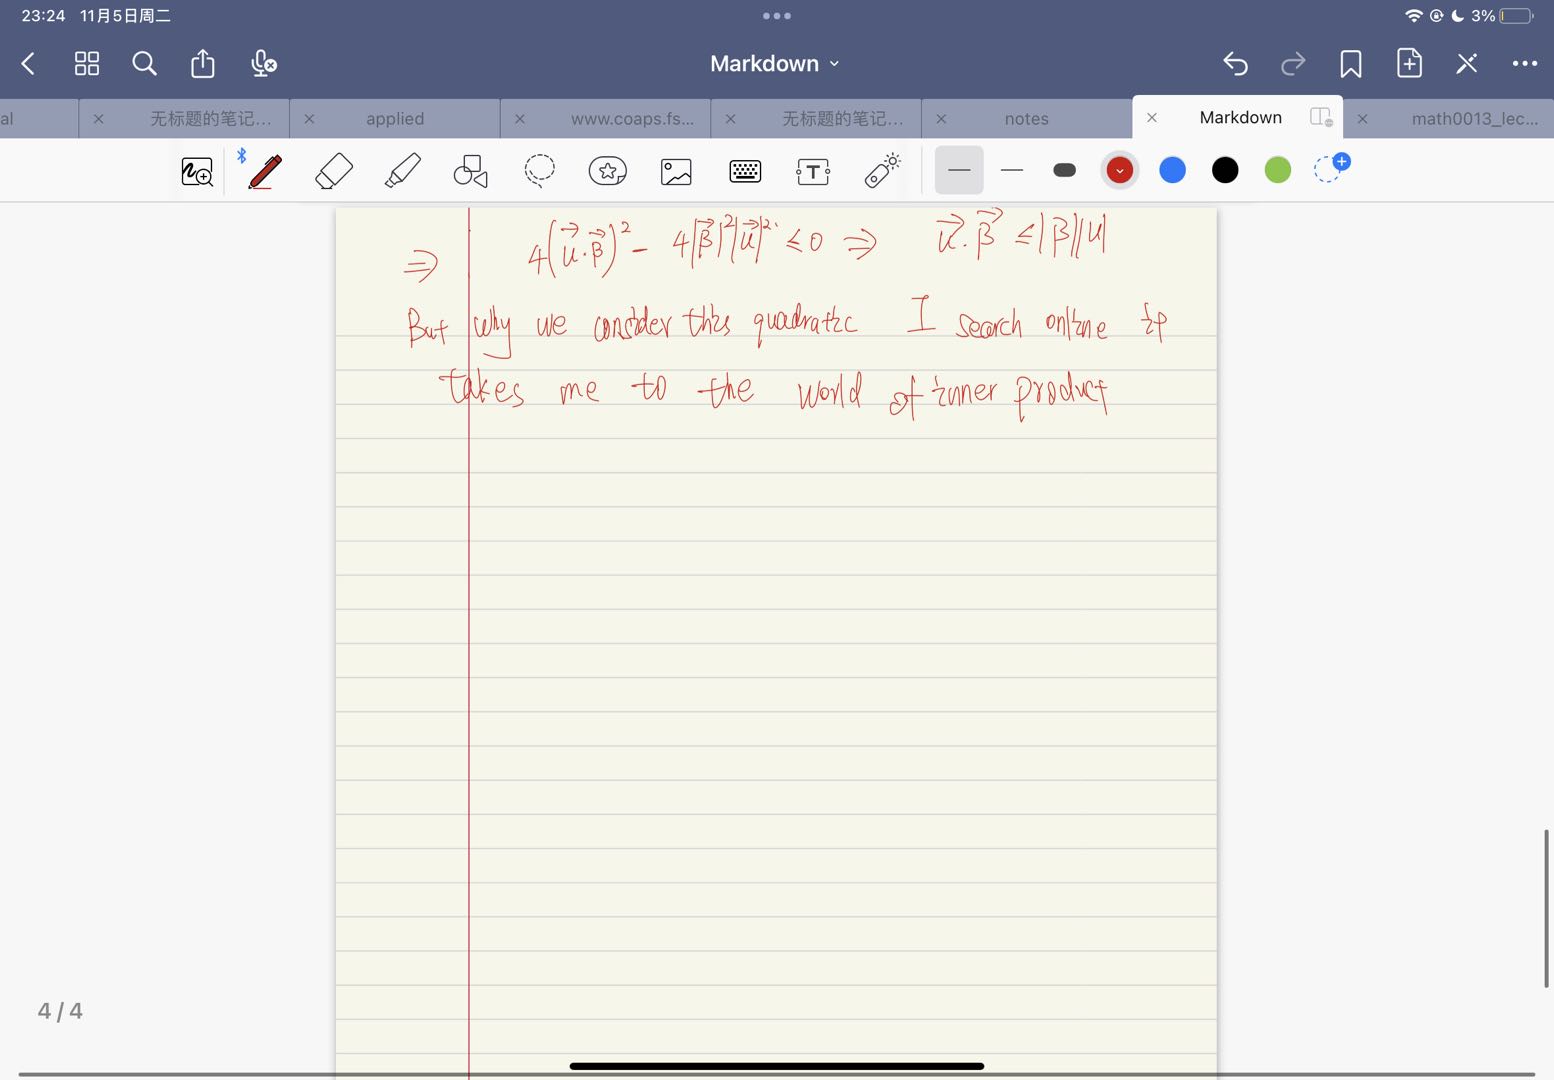 23:24 11月5日周二
3%
Markdown
al
无标题的笔记...
applied
www.coaps.fs...
无标题的笔记...
notes
Markdown
math0013_lec...
⇒ 4(u⃗·β⃗)² - 4|β⃗|²|u⃗|² ≤ 0 ⇒ u⃗·β⃗ ≤ |β||u|
But why we consider this quadratic I search online it
takes me to the world of inner product
4 / 4